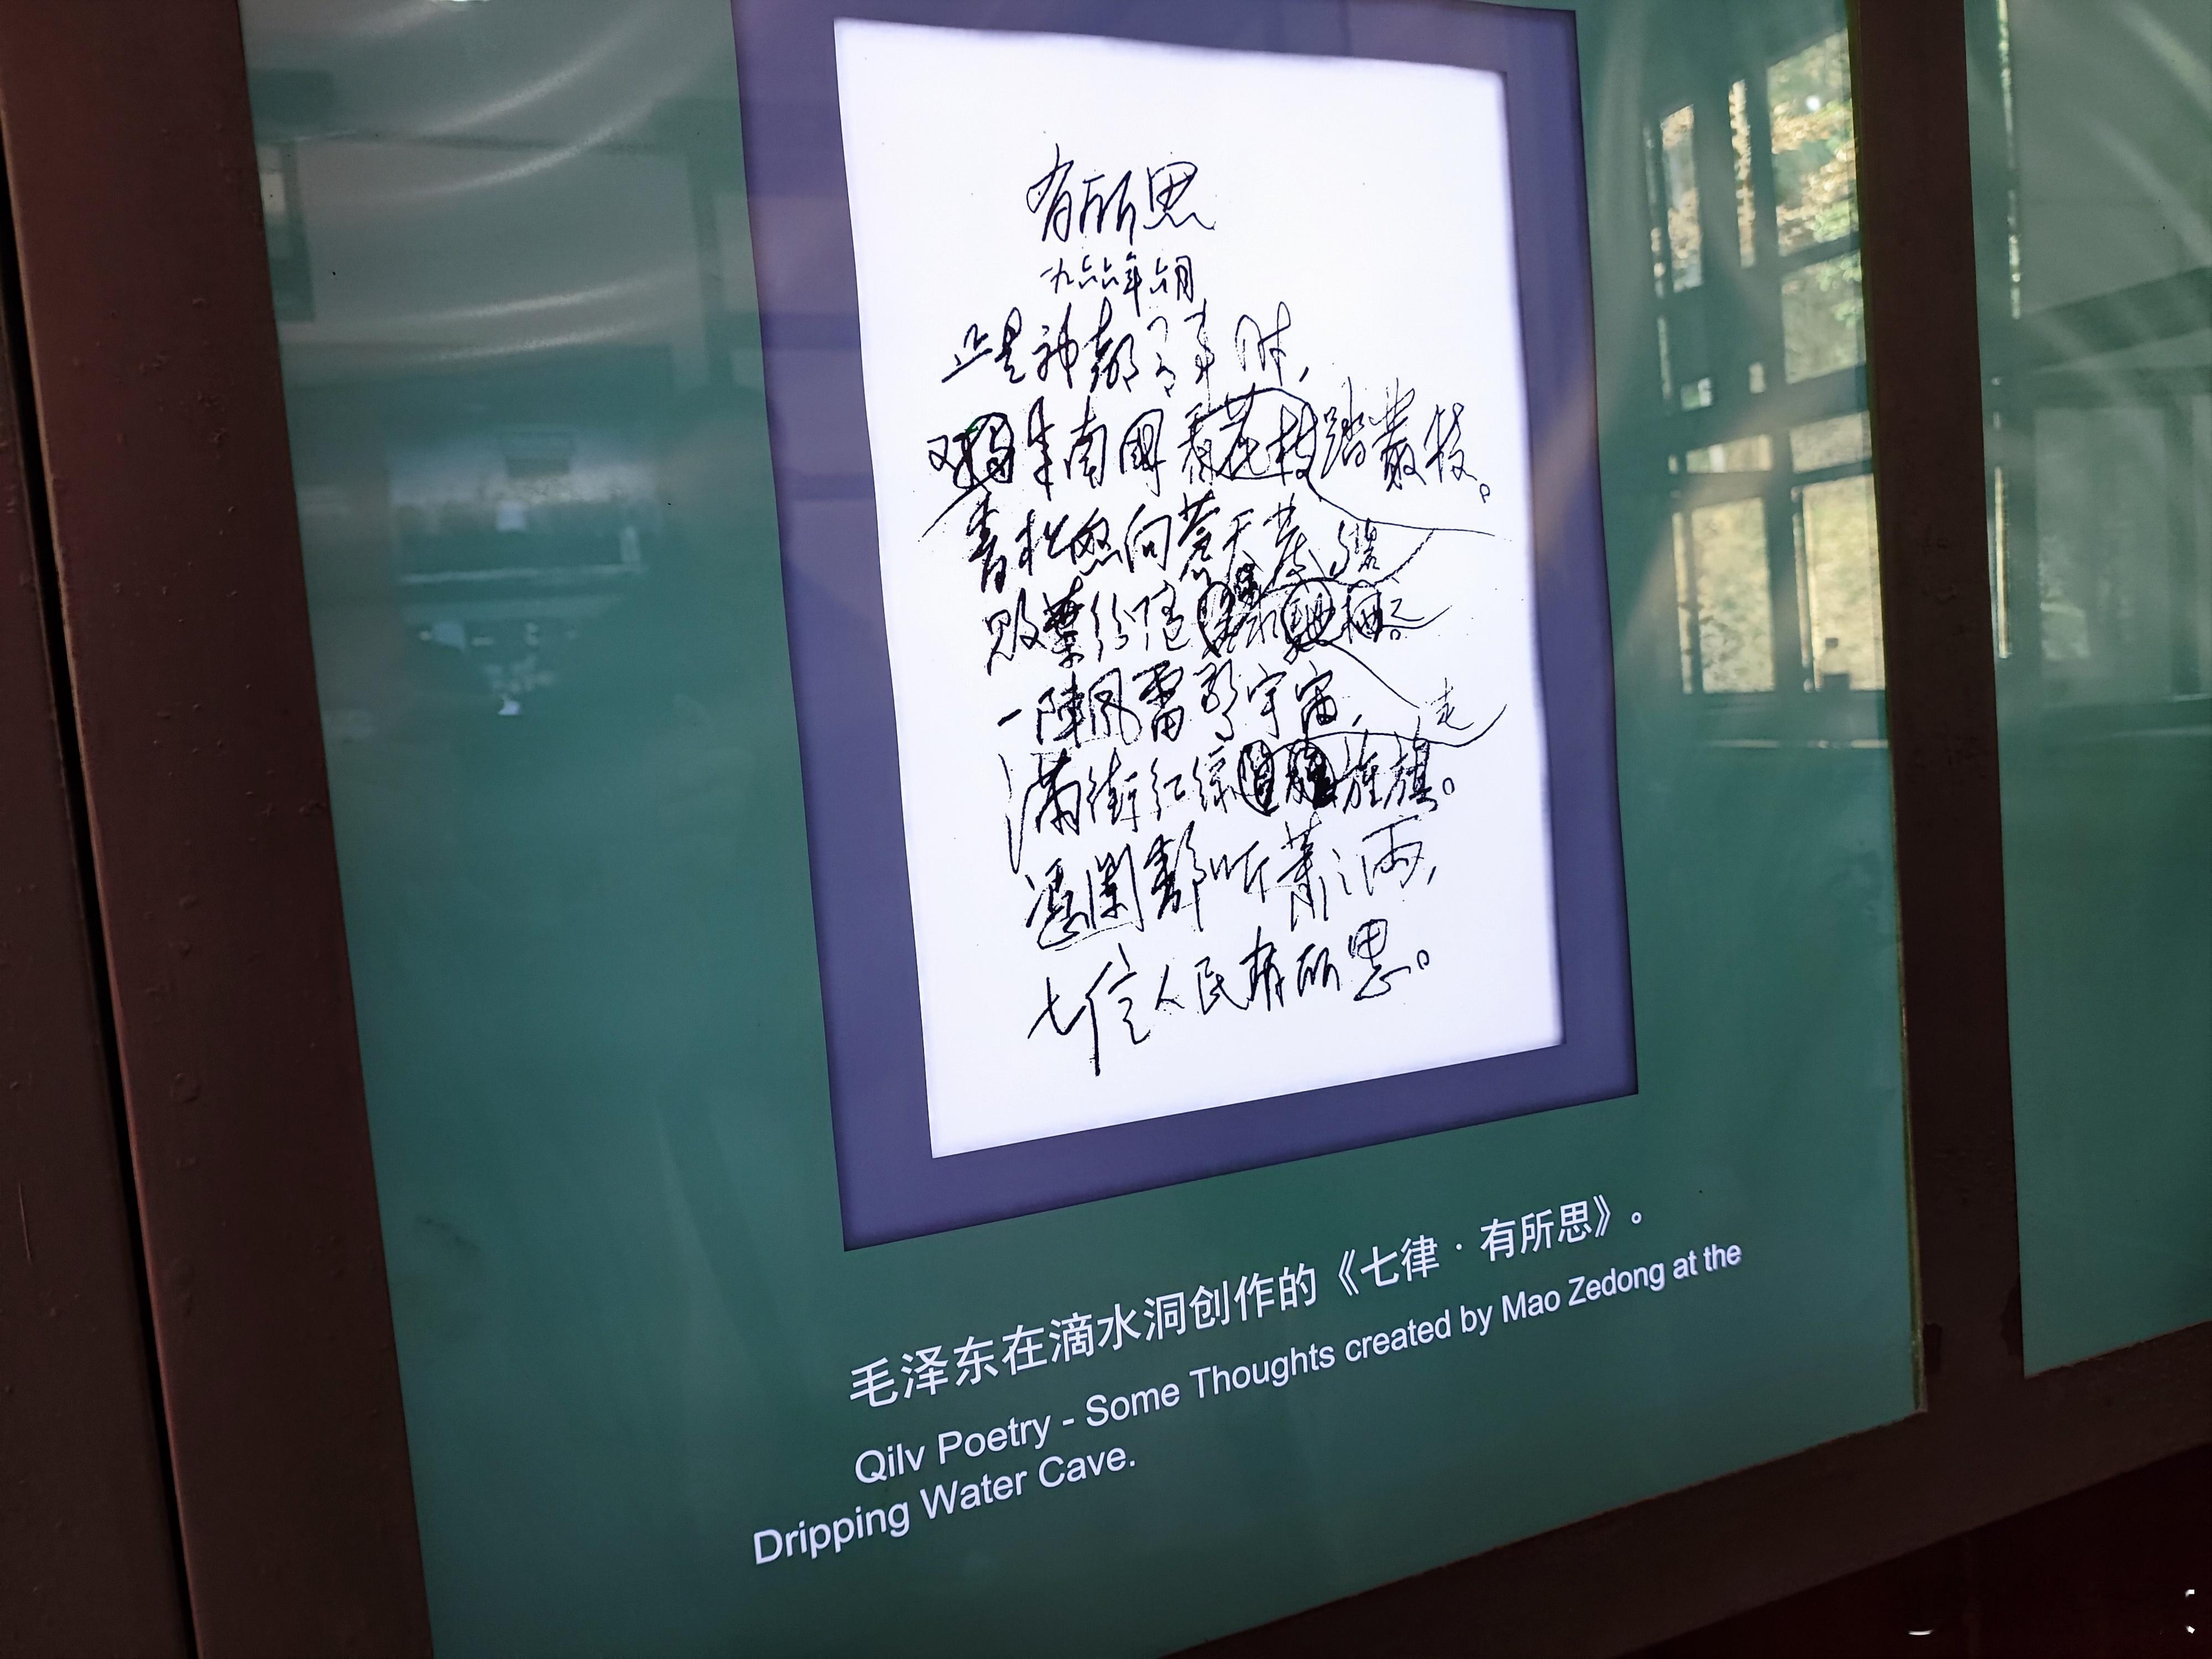 有所思
一九六六年六月
正是神都有事时，
又来南国踏丛枝。
青松怒向苍天发，
败叶纷随碧水
一阵风雷惊宇宙，
满街红绿走旌旗。
凭阑静听萧々雨，
七亿人民有所思。
毛泽东在滴水洞创作的《七律·有所思》。
Qilv Poetry - Some Thoughts created by Mao Zedong at the
Dripping Water Cave.